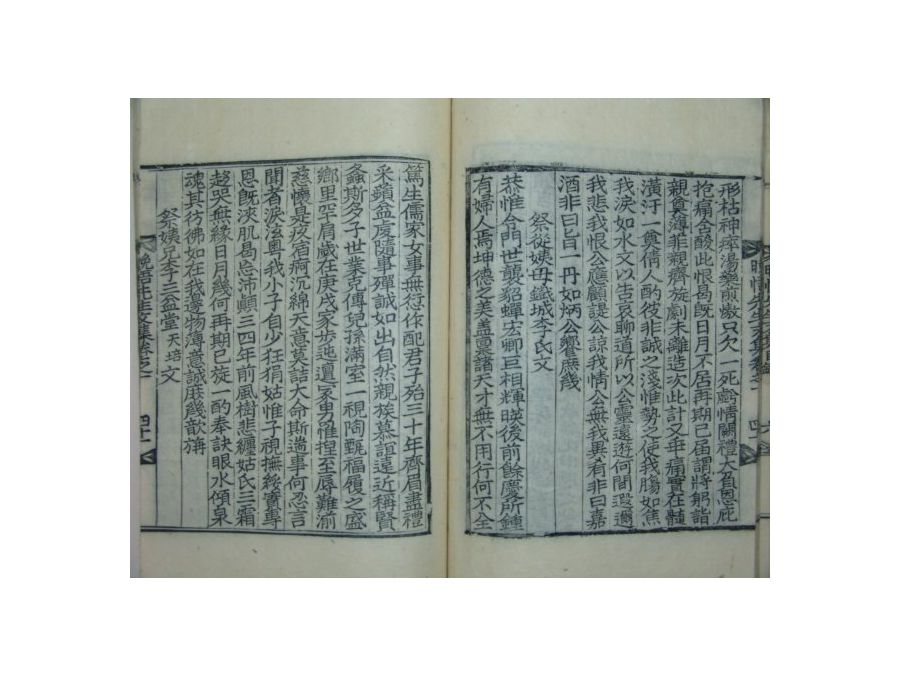 形枯神瘁湯藥前嫩只欠一死齡情關禮大負恩庇
抱痛含酸此恨曷旣日月不居再期已屆謂將躬詣
親奠薄菲親齊旋劇未離造次此計又乖痛實在髓
潢汙一奠倩人酌役非誠之淺惟勢之使我膓如焦
我淚如水文以告哀聊道所以公靈邇遊何間遐邇
我悲我恨公應顧諟公諒我情公無我異肴非曰嘉
酒非曰旨一丹如炳公饗庶幾
祭從姨母鐵城李氏文
恭惟令門世襲貂蟬宏卿巨相輝暎後前餘慶所鍾
有婦人焉坤德之美盖稟諸天才無不用行何不全
篤生儒家女事無愆作配君子殆三十年齊眉盡禮
采蘋益虔隨事殫誠如出自然親族慕誼遠近稱賢
螽斯多子世業克傳兒孫滿室一視陶甄福履之盛
鄕里罕肩歲在庚戌家步迍邅冢男惟捏至辱難湔
慈懷是疚宿痾沉綿天意莫詰大命斯遄事何忍言
聞者淚泫奧我小子自少狂狷姑惟子視撫綏實專
恩旣浹肌曷忘沛顚三四年前風樹悲纏姑氏三霜
趍哭無緣日月幾何再期已旋一酌奉訣眼水傾泉
魂其彷彿如在我邊物薄意誠庶幾歆旃
祭姨兄李三益堂天培文
晩悟先生文集卷之一
四十一